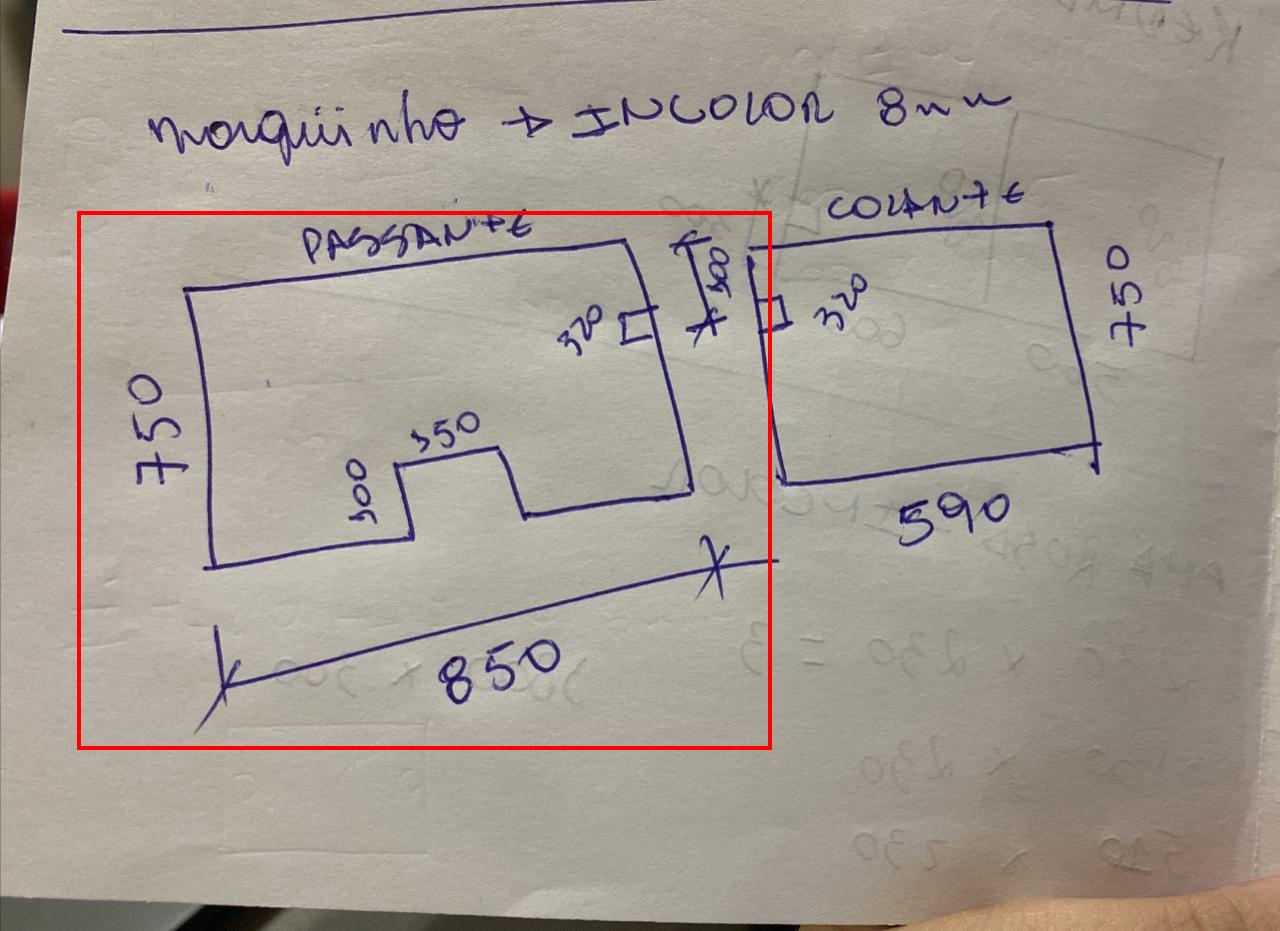 marquinho → INCOLOR 8mm
PASSANTE
COLANTE
300
320
320
750
750
350
300
590
850